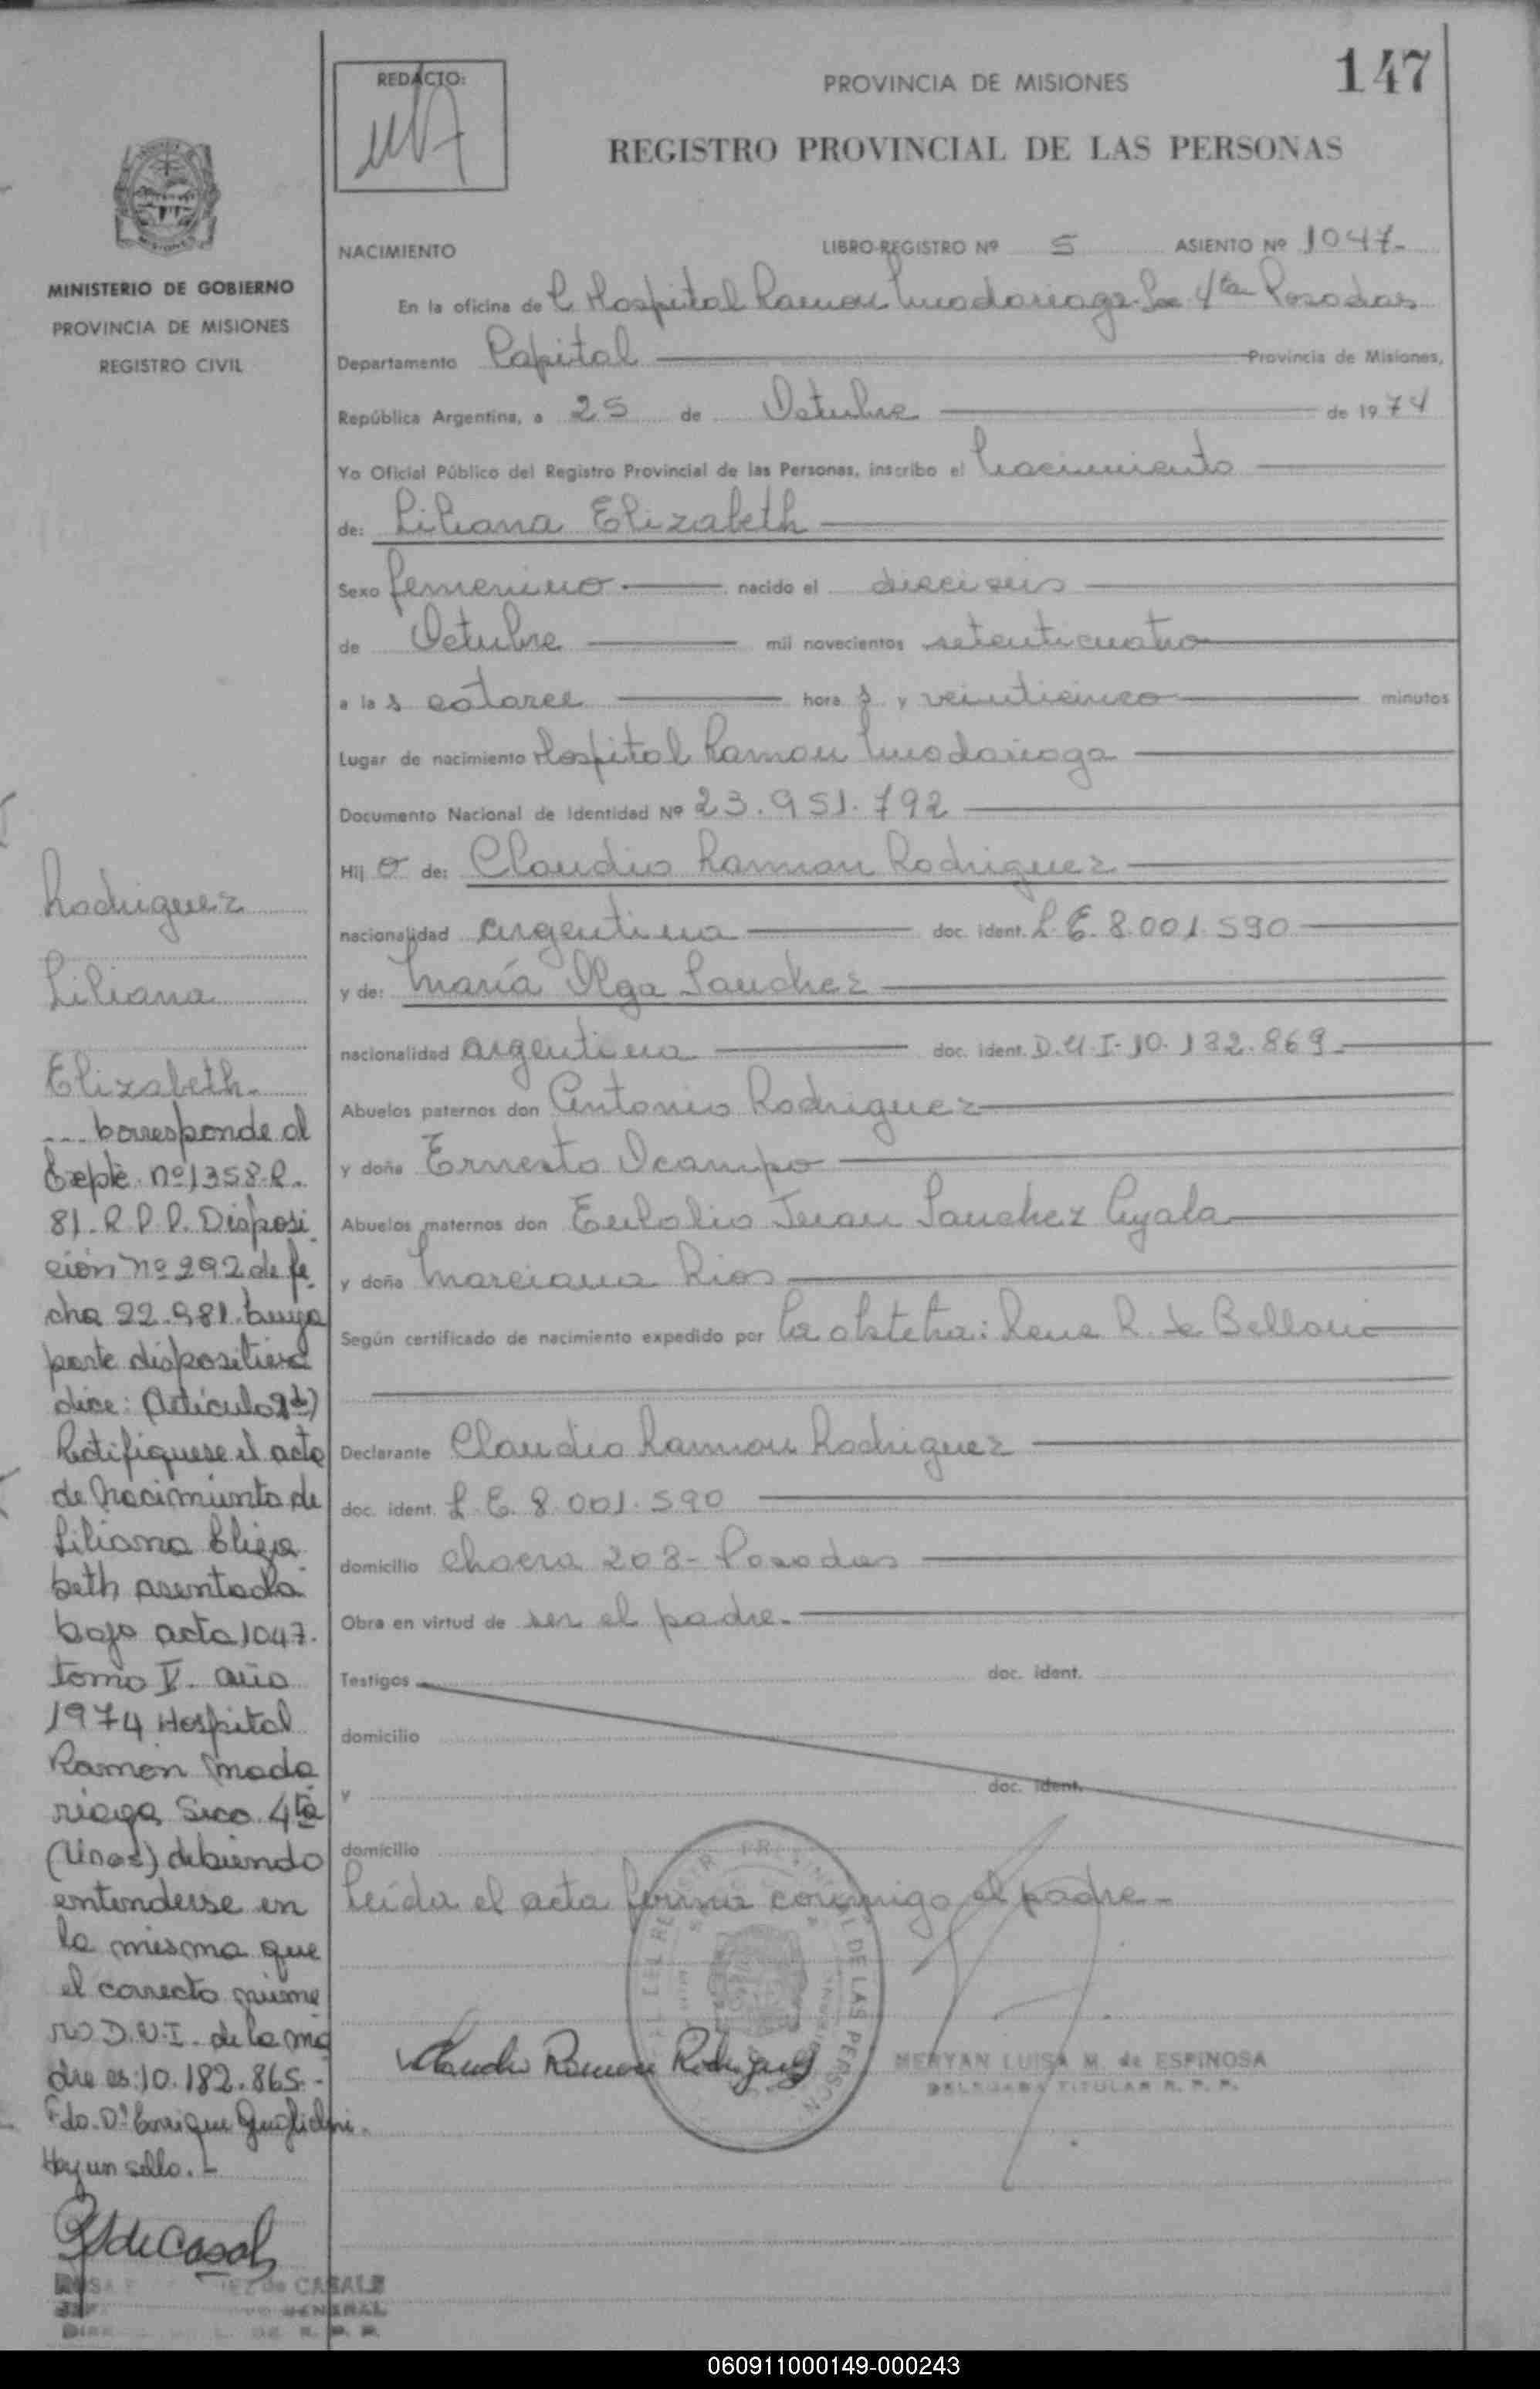 147
REDACTO:
PROVINCIA DE MISIONES
REGISTRO PROVINCIAL DE LAS PERSONAS
MISIONES
MINISTERIO DE GOBIERNO
PROVINCIA DE MISIONES
REGISTRO CIVIL
NACIMIENTO LIBRO-REGISTRO Nº 5 ASIENTO Nº 1047-
En la oficina de l Hospital Ramon Madariaga 4ta Posadas
Departamento Capital Provincia de Misiones,
República Argentina, a 25 de Octubre de 1974
Yo Oficial Público del Registro Provincial de las Personas, inscribo el Nacimiento
de: Liliana Elizabeth
Sexo femenino nacido el dieciseis
de Octubre mil novecientos setenticuatro
a la s catorce hora s y veinticinco minutos
Lugar de nacimiento Hospital Ramon Madariaga
Documento Nacional de Identidad Nº 23.951.792
Hij a de: Claudio Ramon Rodriguez
nacionalidad argentina doc. ident. L.E. 8.001.590
y de: Maria Olga Sanchez
nacionalidad argentina doc. ident. D.U.I-10.182.869-
Abuelos paternos don Antonio Rodriguez
y doña Ernesta Ocampo
Abuelos maternos don Eulalio Juan Sanchez Ayala
y doña Marciana Rios
Según certificado de nacimiento expedido por la obstetra: Rene R. de
Declarante Claudio Ramon Rodriguez
doc. ident. L.E. 8.001.590
domicilio Chacra 203- Posadas
Obra en virtud de ser el padre.
Testigos doc. ident.
domicilio
y doc. ident.
domicilio
leida el acta firma conmigo el padre-
Claudio Ramon Rodriguez
MERYAN LUISA M. de ESPINOSA
DELEGADA TITULAR R. P. P.
Rodriguez
Liliana
Elizabeth.
... Corresponde al
Expte. nº1358-R.
81-R.P.P. Disposi
ción nº 292 de fe
cha 22.981. Cuya
parte dispositiva
dice: Artículo 1º)
Rectifiquese el acta
de Nacimiento de
Liliana Eliza
beth asentada
bajo acta 1047.
tomo V. año
1974 Hospital
Ramón Mada
riaga Secc. 4ta
(Unas) debiendo
entenderse en
la misma que
el correcto núme
ro D.U.I. de la ma
dre es: 10.182.865.-
Fdo. Dr Enrique
Hay un sello.-
CASALS
GENERAL
R. P. P.
060911000149-000243